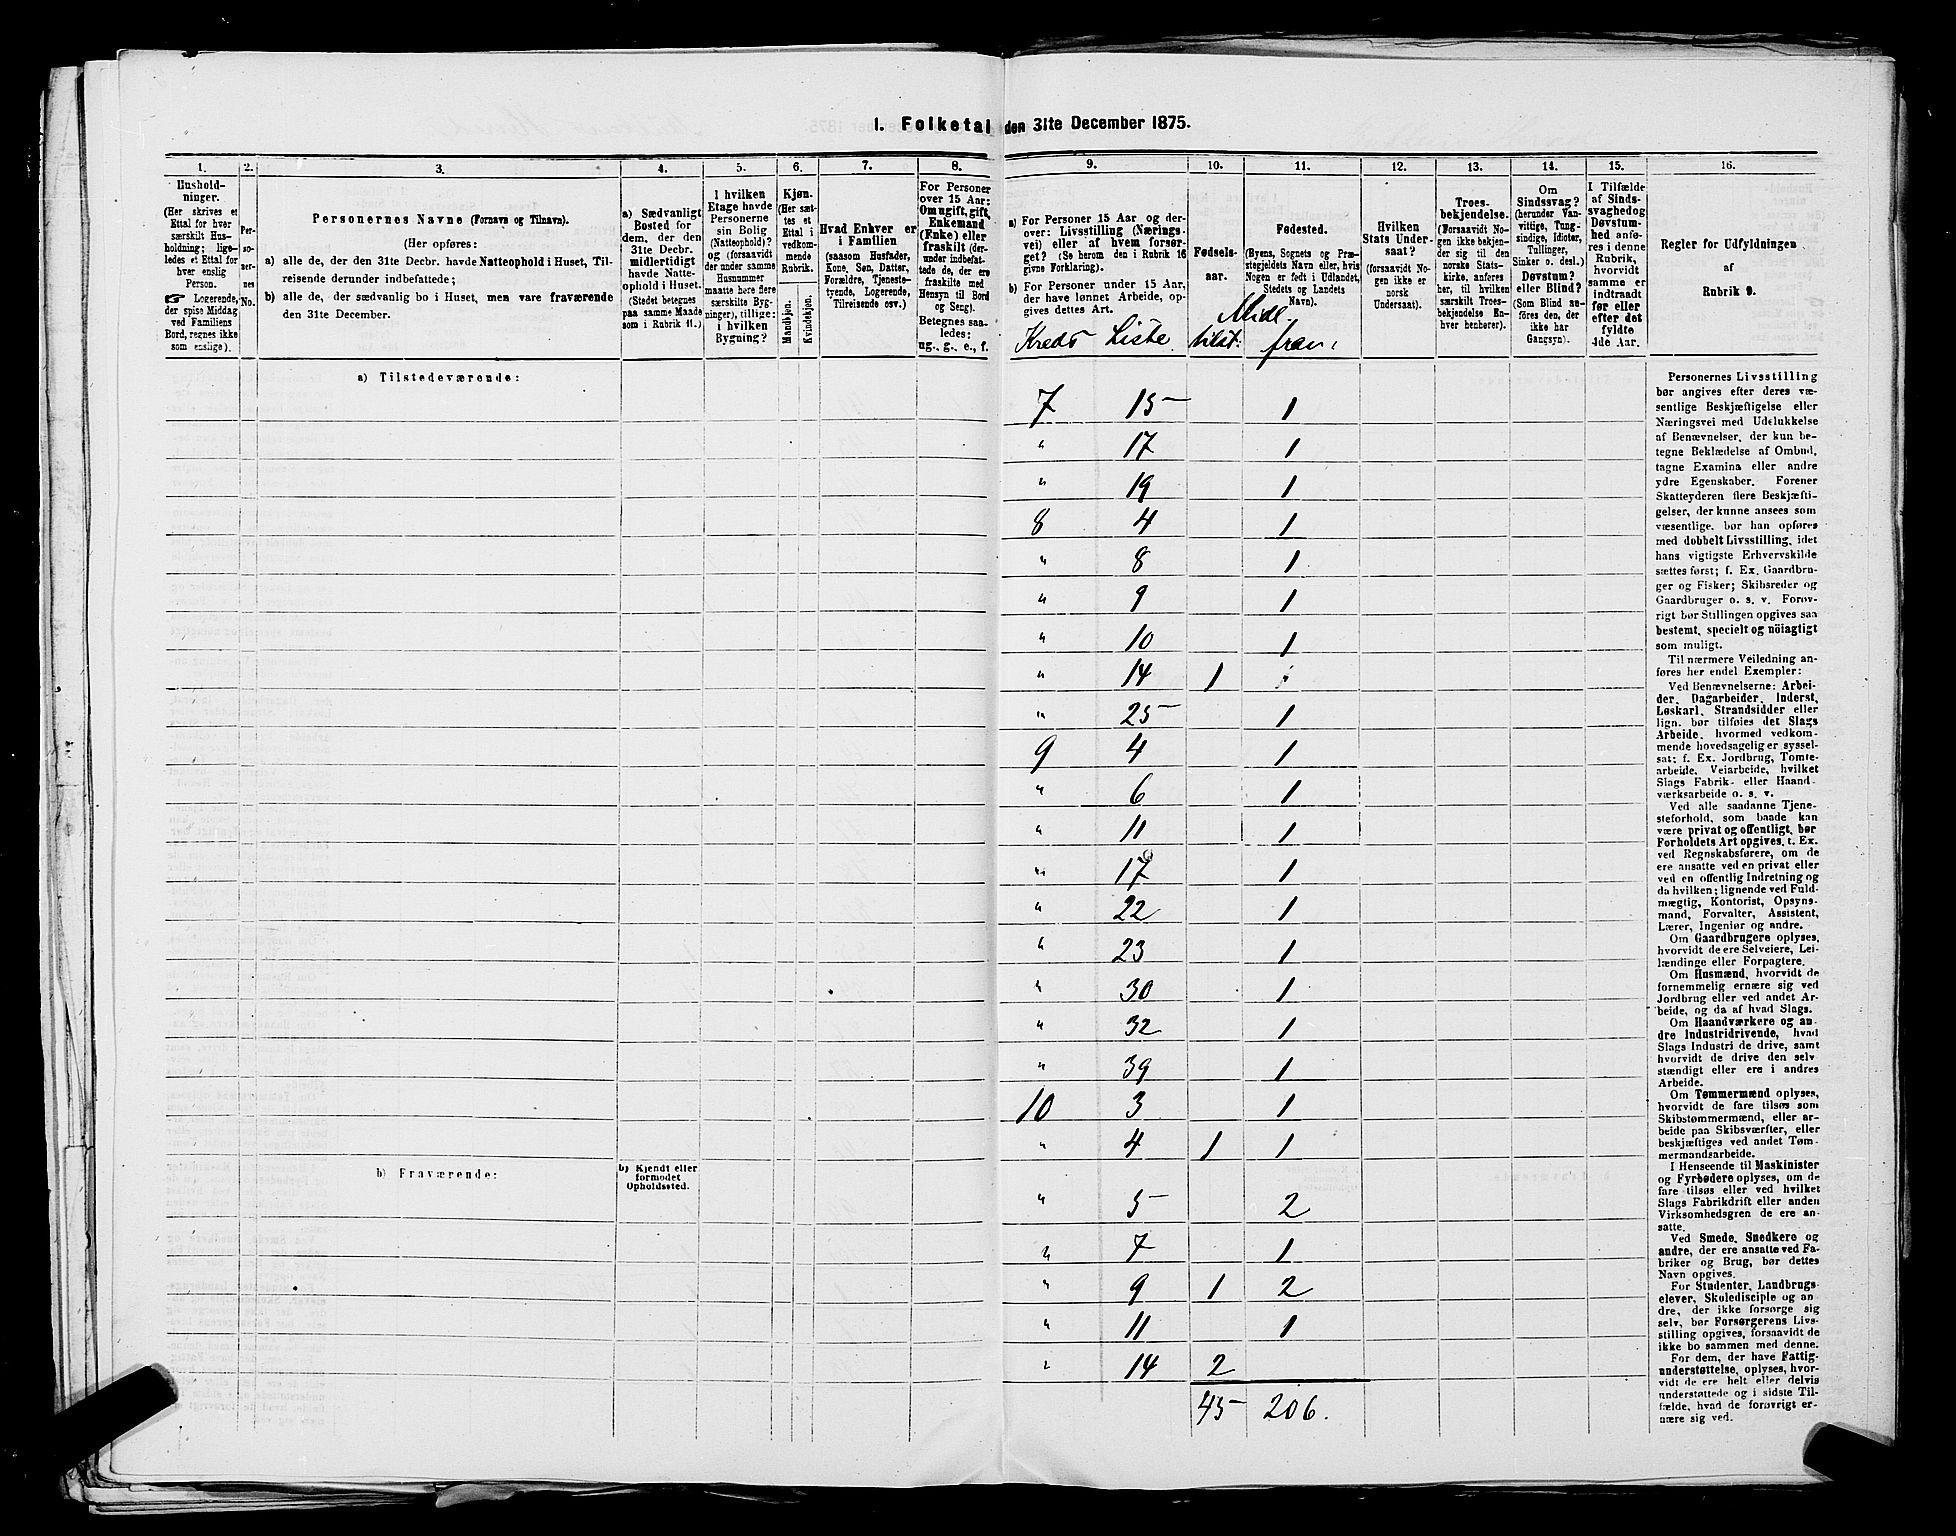 1. Folketal den 31te December 1875.
1.
2.
3.
4.
5.
6.
7.
8.
9.
10.
11.
12.
13.
14.
15.
16.
Hushold-
ninger.
(Her skrives et
Ettal for hver
særskilt Hus-
holdning; lige-
ledes et Ettal for
hver enslig
Person.
☞ Logerende,
der spise Middag
ved Familiens
Bord, regnes ikke
som enslige).
Per-
so-
ner-
nes
No.
Personernes Navne (Fornavn og Tilnavn).
(Her opføres:
a) alle de, der den 31te Decbr. havde Natteophold i Huset, Til-
reisende derunder indbefattede;
b) alle de, der sædvanlig bo i Huset, men vare fraværende
den 31te December.
a) Sædvanligt
Bosted for
dem, der den
31te Decbr.
midlertidigt
havde Natte-
ophold i Huset.
(Stedet betegnes
paa samme Maade
som i Rubrik 11.)
I hvilken
Etage havde
Personerne
sin Bolig
(Natteophold)?
og (forsaavidt
der under samme
Husnummer
maatte høre flere
særskilte Byg-
ninger), tillige:
i hvilken
Bygning?
Kjøn.
(Her sæt-
tes et
Ettal i
vedkom-
mende
Rubrik.
Mandkjøn.
Kvindekjøn.
Hvad Enhver er
i Familien
(saasom Husfader,
Kone, Søn, Datter,
Forældre, Tjeneste-
tyende, Logerende,
Tilreisende osv.)
For Personer
over 15 Aar:
Om ugift, gift,
Enkemand
(Enke) eller
fraskilt (der-
under indbefat-
tede de, der ere
fraskilte med
Hensyn til Bord
og Seng).
Betegnes saa-
ledes:
ug., g., e., f.
a) For Personer 15 Aar og der-
over: Livsstilling (Nærings-
vei) eller af hvem forsør-
get? (Se herom den i Rubrik 16
givne Forklaring).
b) For Personer under 15 Aar,
der have lønnet Arbeide, op-
gives dettes Art.
Kreds Liste
Fødsels-
aar.
Midl.
tilst:
Fødested.
(Byens, Sognets og Præ-
stegjeldets Navn eller, hvis
Nogen er født i Udlandet,
Stedets og Landets
Navn).
frav.
Hvilken
Stats Under-
saat?
(forsaavidt No-
gen ikke er
norsk
Undersaat).
Troes-
bekjendelse.
(Forsaavidt No-
gen ikke bekjen-
der sig til den
norske Stats-
kirke, anføres
her, til hvilken
særskilt Troes-
bekjendelse En-
hver henhører).
Om
Sindssvag?
(herunder Van-
vittige, Tung-
sindige, Idioter,
Tullinger,
Sinker o. desl.)
Døvstum?
eller Blind?
(Som Blind an-
føres den, der
ikke har
Gangsyn).
I Tilfælde
af Sinds-
svaghed og
Døvstum-
hed anfø-
res i denne
Rubrik,
hvorvidt
samme er
indtraadt
før eller
efter det
fyldte
4de Aar.
Regler for Udfyldningen
af
Rubrik 9.
a) Tilstedeværende:
7 15 1
" 17 1
" 19 1
8 4 1
" 8 1
" 9 1
" 10 1
" 14 1
" 25 1
9 4 1
" 6 1
" 11 1
" 17 1
" 22 1
" 23 1
" 30 1
" 32 1
" 39 1
10 3 1
" 4 1 1
b) Fraværende:
b) Kjendt eller
formodet
Opholdssted.
" 5 2
" 7 1
" 9 1 2
" 11 1
" 14 2
45 206.
Personernes Livsstilling
bør angives efter deres væ-
sentlige Beskjæftigelse eller
Næringsvei med Udelukkelse
af Benævnelser, der kun be-
tegne Beklædelse af Ombud,
tagne Examina eller andre
ydre Egenskaber. Forener
Skatteyderen flere Beskjæfti-
gelser, der kunne ansees som
væsentlige, bør han opføres
med dobbelt Livsstilling, idet
hans vigtigste Erhvervskilde
sættes først; f. Ex. Gaardbru-
ger og Fisker; Skibsreder og
Gaardbruger o. s. v. Forøv-
rigt bør Stillingen opgives saa
bestemt, specielt og nöiagtigt
som muligt.
Til nærmere Veiledning an-
føres her endel Exempler:
Ved Benævnelserne: Arbei-
der, Dagarbeider, Inderst,
Løskarl, Strandsidder eller
lign. bør tilføies det Slags
Arbeide, hvormed vedkom-
mende hovedsagelig er syssel-
sat; f. Ex. Jordbrug, Tomte-
arbeide, Veiarbeide, hvilket
Slags Fabrik- eller Haand-
værksarbeide o. s. v.
Ved alle saadanne Tjene-
steforhold, som baade kan
være privat og offentligt, bør
Forholdets Art opgives, t. Ex.
ved Regnskabsførere, om de
ere ansatte ved en privat eller
ved en offentlig Indretning og
da hvilken; lignende ved Fuld-
mægtig, Kontorist, Opsyns-
mand, Forvalter, Assistent,
Lærer, Ingeniør og andre.
Om Gaardbrugere oplyses,
hvorvidt de ere Selveiere, Lei-
lændinge eller Forpagtere.
Om Husmænd, hvorvidt de
fornemmelig ernære sig ved
Jordbrug eller ved andet Ar-
beide, og da af hvad Slags.
Om Haandværkere og an-
dre Industridrivende, hvad
Slags Industri de drive, samt
hvorvidt de drive den selv-
stændigt eller ere i andres
Arbeide.
Om Tømmermænd oplyses,
hvorvidt de fare tilsøs som
Skibstømmermænd, eller ar-
beide paa Skibsværfter, eller
beskjæftiges ved andet Tøm-
mermandsarbeide.
I Henseende til Maskinister
og Fyrbødere oplyses, om de
fare tilsøs eller ved hvilket
Slags Fabrikdrift eller anden
Virksomhedsgren de ere an-
satte.
Ved Smede, Snedkere og
andre, der ere ansatte ved Fa-
briker og Brug, bør dettes
Navn opgives.
For Studenter, Landbrugs-
elever, Skoledisciple og an-
dre, der ikke forsørge sig
selv, bør Forsørgerens Livs-
stilling opgives, forsaavidt de
ikke bo sammen med denne.
For dem, der have Fattig-
understøttelse, oplyses, hvor-
vidt de ere helt eller delvis
understøttede og i sidste Til-
fælde, hvad de forøvrigt er-
nære sig ved.